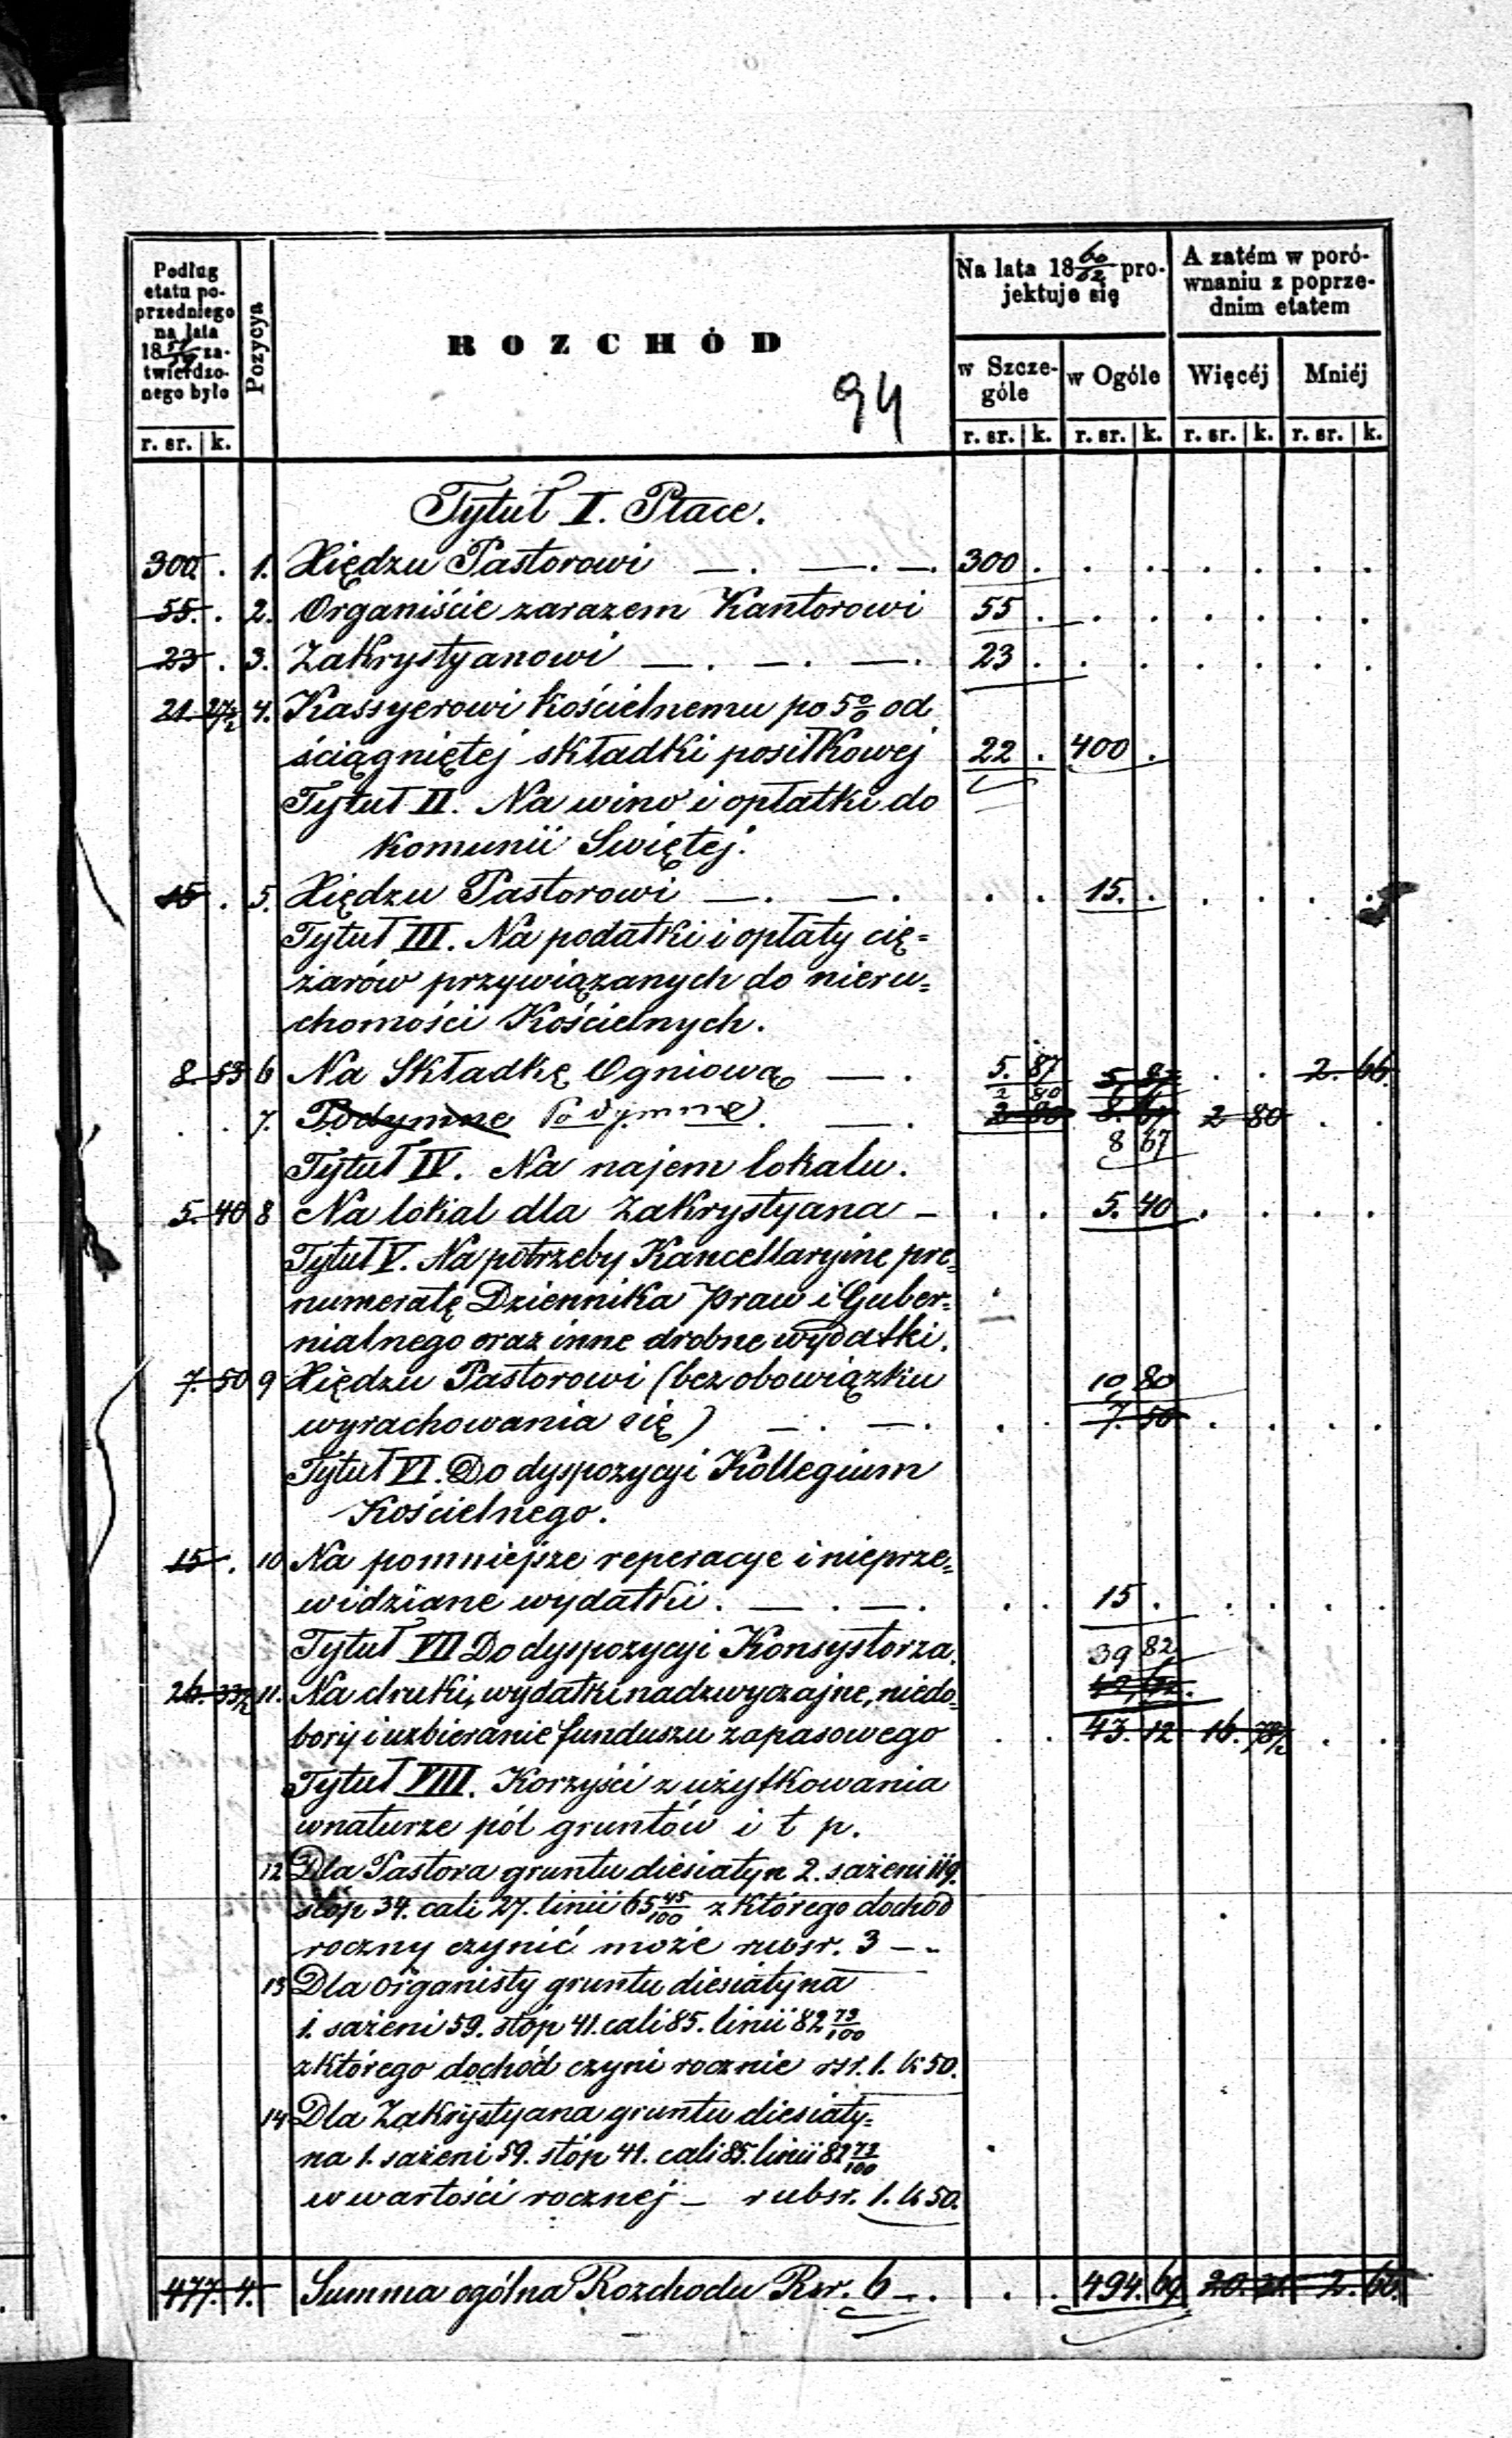 Podług etatu poprzedniego na lata 18 57/59 zatwierdzonego było
Pozycya
ROZCHÓD
94
Na lata 18 60/62 projektuje się
A zatém w porównaniu z poprzednim etatem
w Szczególe
w Ogóle
Więcéj
Mniéj
r. sr. k. r. sr. k. r. sr. k. r. sr. k. r. sr. k.
Tytuł I. Płace.
300 . 1. Xiędzu Pastorowi — . — . — . 300 . . . . . . .
55 . 2. Organiście zarazem Kantorowi 55 . . . . . . .
23 . 3. Zakrystyanowi — . — . — . 23 . . . . . . .
21. 27½ 4. Kassyerowi Kościelnemu po 5 % od
ściągniętej składki posiłkowej 22 . 400 .
Tytuł II. Na wino i opłatki do
Komunii Swiętej.
15 . 5. Xiędzu Pastorowi — . — . . . 15. . . . . .
Tytuł III. Na podatki i opłaty cię=
żarów przywiązanych do nieru=
chomości Kościelnych.
8. 53 6 Na Składkę Ogniową — . 5. 87 5 87 . . 2. 66.
2 80
. . 7. Podymne Podymne . — . 2 80 8. 67 2 80 . .
8 67
Tytuł IV. Na najem lokalu.
5. 40 8 Na lokal dla Zakrystyana — . . 5. 40 . . . .
Tytuł V. Na potrzeby Kancellaryjne pre=
numeratę Dziennika Praw i Guber=
nialnego oraz inne drobne wydatki.
7. 50 9 Xiędzu Pastorowi (bez obowiązku 10 80
wyrachowania się) — . — . . . 7. 50 . . . .
Tytuł VI. Do dyspozycyi Kollegium
Kościelnego.
15 . 10 Na pomniejsze reperacye i nieprze=
widziane wydatki . — . — . . . 15 . . . . .
Tytuł VII Do dyspozycyi Konsystorza. 39 82
26. 33½ 11. Na druki, wydatki nadzwyczajne, niedo=
bory i uzbieranie funduszu zapasowego . . 43. 12 16. 78½ . .
Tytuł VIII. Korzyści z użytkowania
w naturze pól gruntów i t p.
12 Dla Pastora gruntu diesiatyn 2. sażeni 119.
stóp 34. cali 27. linii 65 45/100 z którego dochód
roczny czynić może rubsr. 3 — .
13 Dla organisty gruntu diesiatyna
1. sażeni 59. stóp 41. cali 85. linii 82 73/100
z którego dochód czyni rocznie rsr. 1. k 50.
14 Dla Zakrystyana gruntu diesiaty=
na 1. sażeni 59. stóp 41. cali 85. linii 82 73/100
w wartości rocznej — rubsr. 1. k 50.
477. 4. Summa ogólna Rozchodu Rsr. 6 — . . . 494. 69 20. 2. 66.